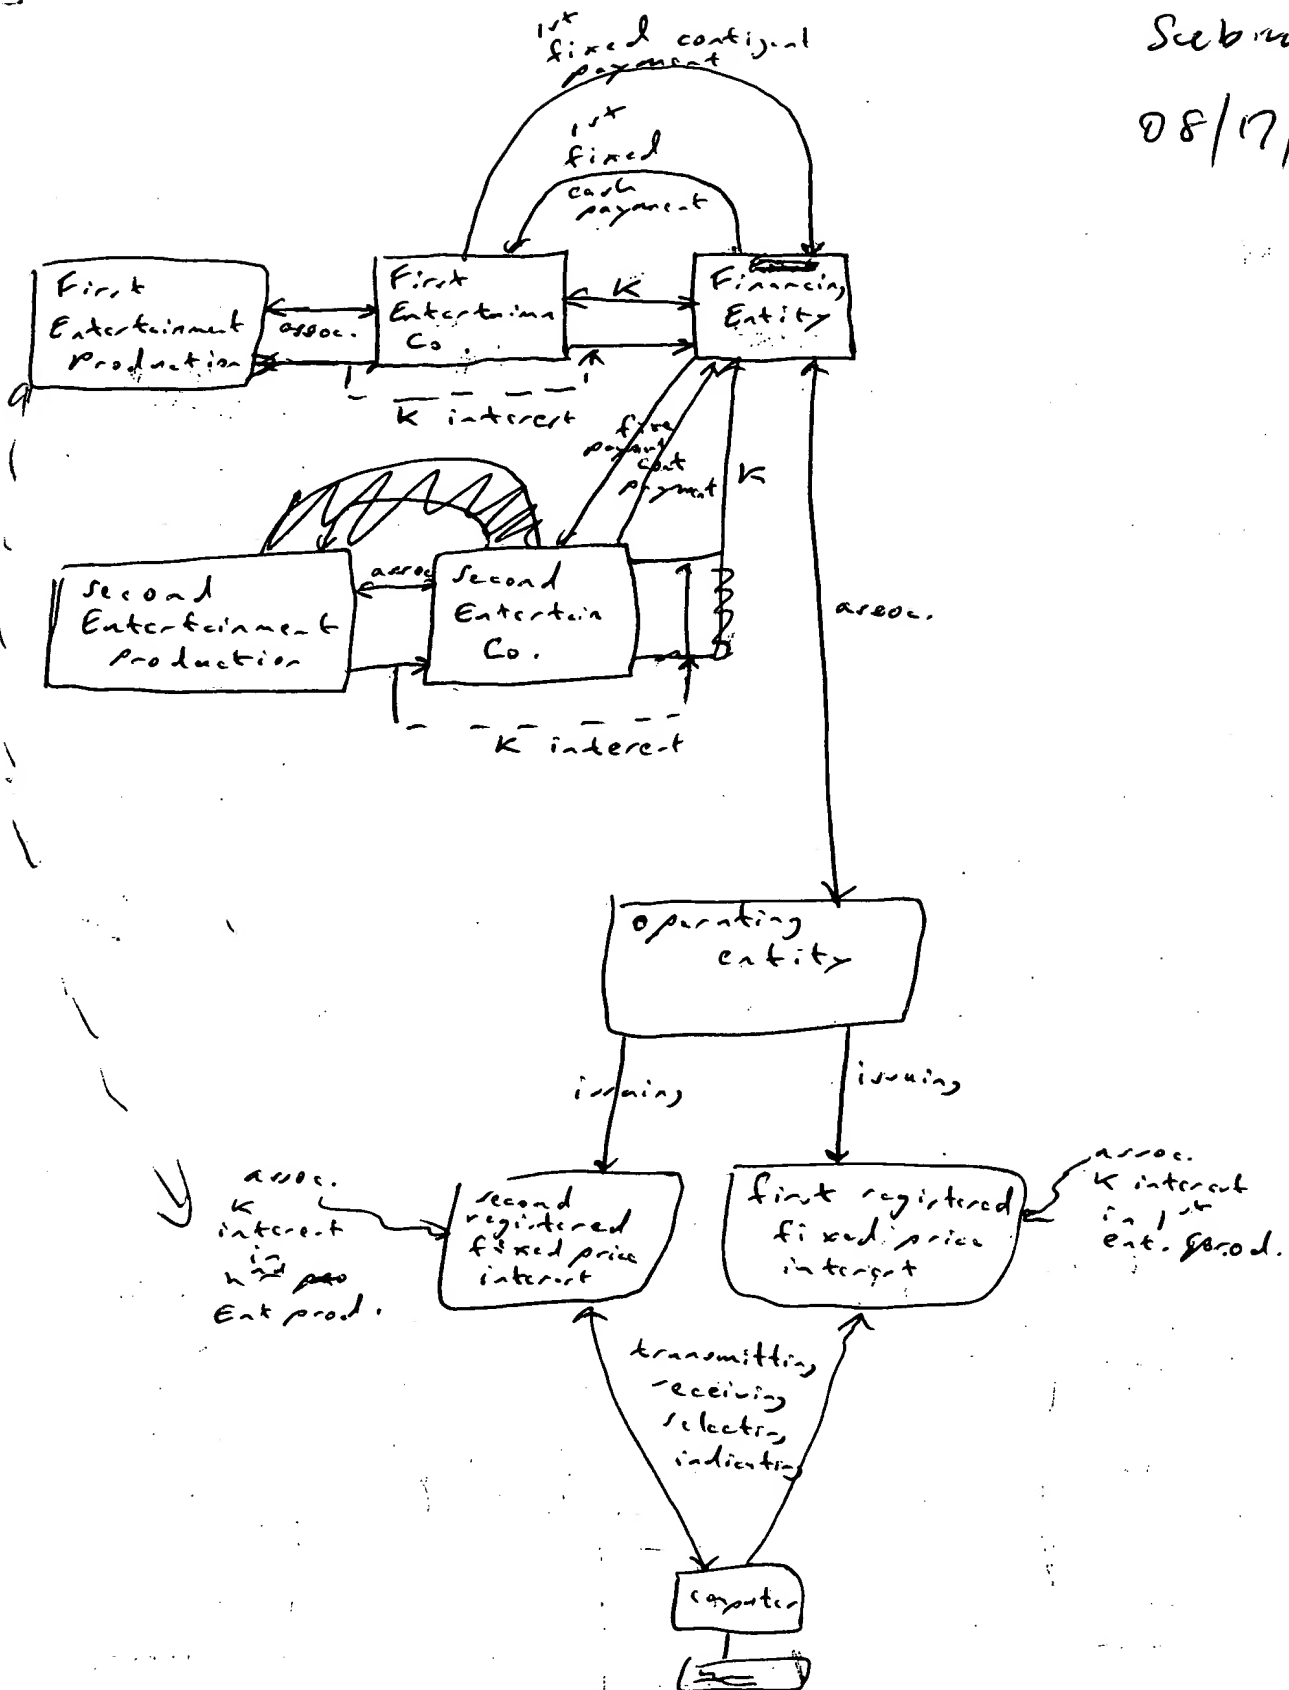 1st
fixed contigent
payment
08/17/
1st
fixed
cash
payment
First
Entertainment
Production
assoc.
First
Entertainm
Co.
K
Financing
Entity
K interest
fixe
payment
cont
payment
K
second
Entertainment
Production
assoc
Second
Entertain
Co.
K interest
assoc.
operating
entity
issuing
issuing
assoc.
K
interest
in
Ent prod.
second
registered
fixed price
interest
first registered
fixed price
interest
assoc.
K interest
in 1st
ent. prod.
transmitting
receiving
selecting
indicating
computer